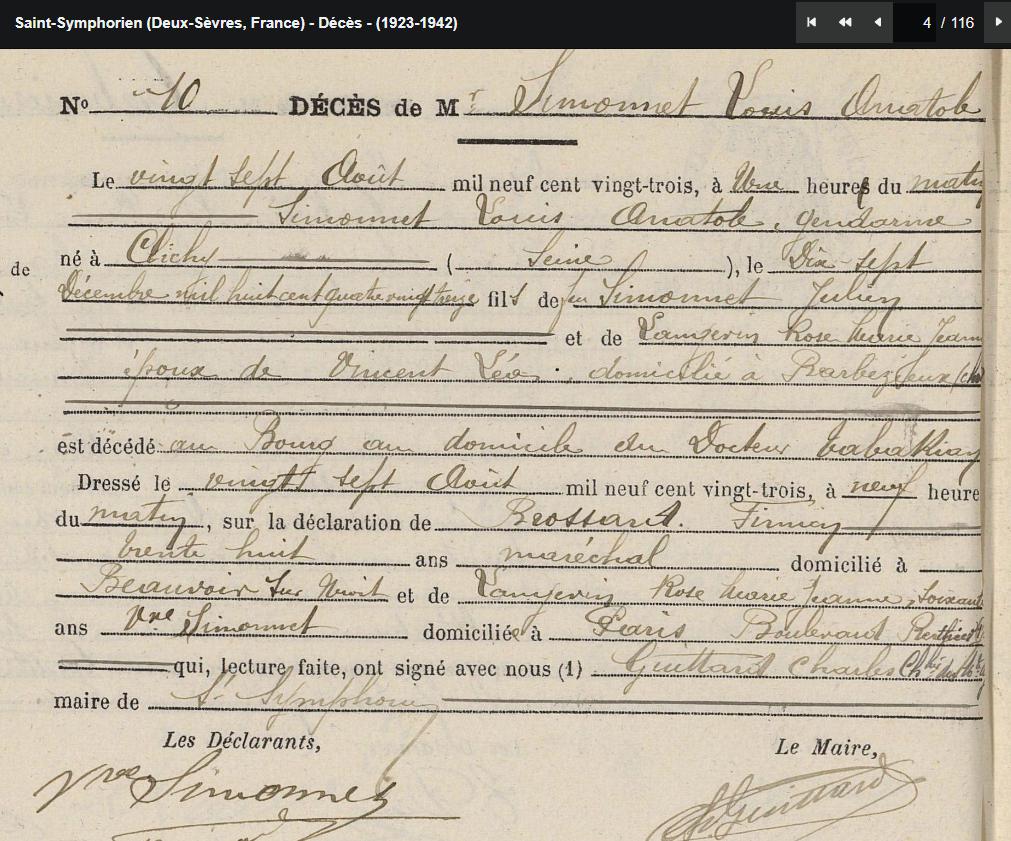 Saint-Symphorien (Deux-Sèvres, France) - Décès - (1923-1942)
4 / 116
Nº 10 DÉCÈS de Mr Simonnet Louis Anatole
Le vingt sept Août mil neuf cent vingt-trois, à Une heure du matin
Simonnet Louis Anatole, gendarme
de
né à Clichy ( Seine ), le Dix sept
Décembre mil huit cent quatre vingt treize fils de feu Simonnet Julien
et de Langevin Rose Marie Jeanne
époux de Vincent Léa, domicilié à Barbezieux
est décédé au Bourg au domicile du Docteur
Dressé le vingt sept Août mil neuf cent vingt-trois, à neuf heure
du matin, sur la déclaration de Brossard Firmin
trente huit ans maréchal domicilié à
Beauvoir sur Niort et de Langevin Rose Marie Jeanne, soixante
ans Vve Simonnet domiciliée à Paris Boulevard
qui, lecture faite, ont signé avec nous (1) Guittard Charles
maire de St Symphorien
Les Déclarants, Le Maire,
Vve Simonnet Guittard